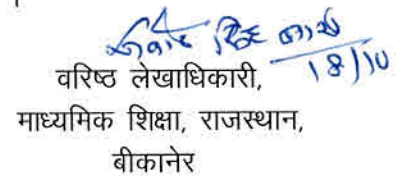 18/10
वरिष्ठ लेखाधिकारी,
माध्यमिक शिक्षा, राजस्थान,
बीकानेर